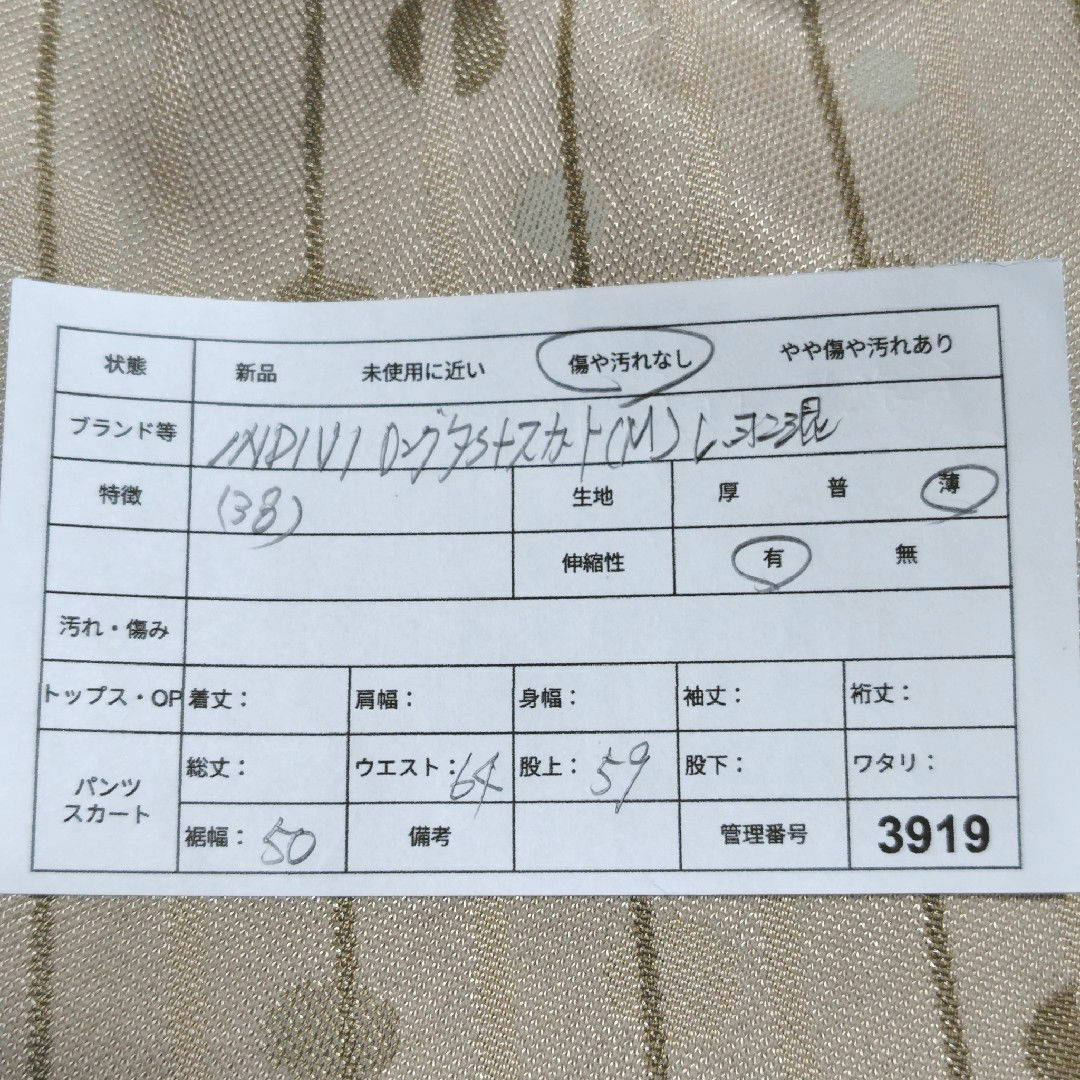 状態 新品 未使用に近い 傷や汚れなし やや傷や汚れあり
ブランド等 INDIVI ロングタイトスカート(M) レーヨン混
特徴 (38) 生地 厚 普 薄
伸縮性 有 無
汚れ・傷み
トップス・OP 着丈: 肩幅: 身幅: 袖丈: 裄丈:
パンツ スカート 総丈: ウエスト:64 股上:59 股下: ワタリ:
裾幅:50 備考 管理番号 3919